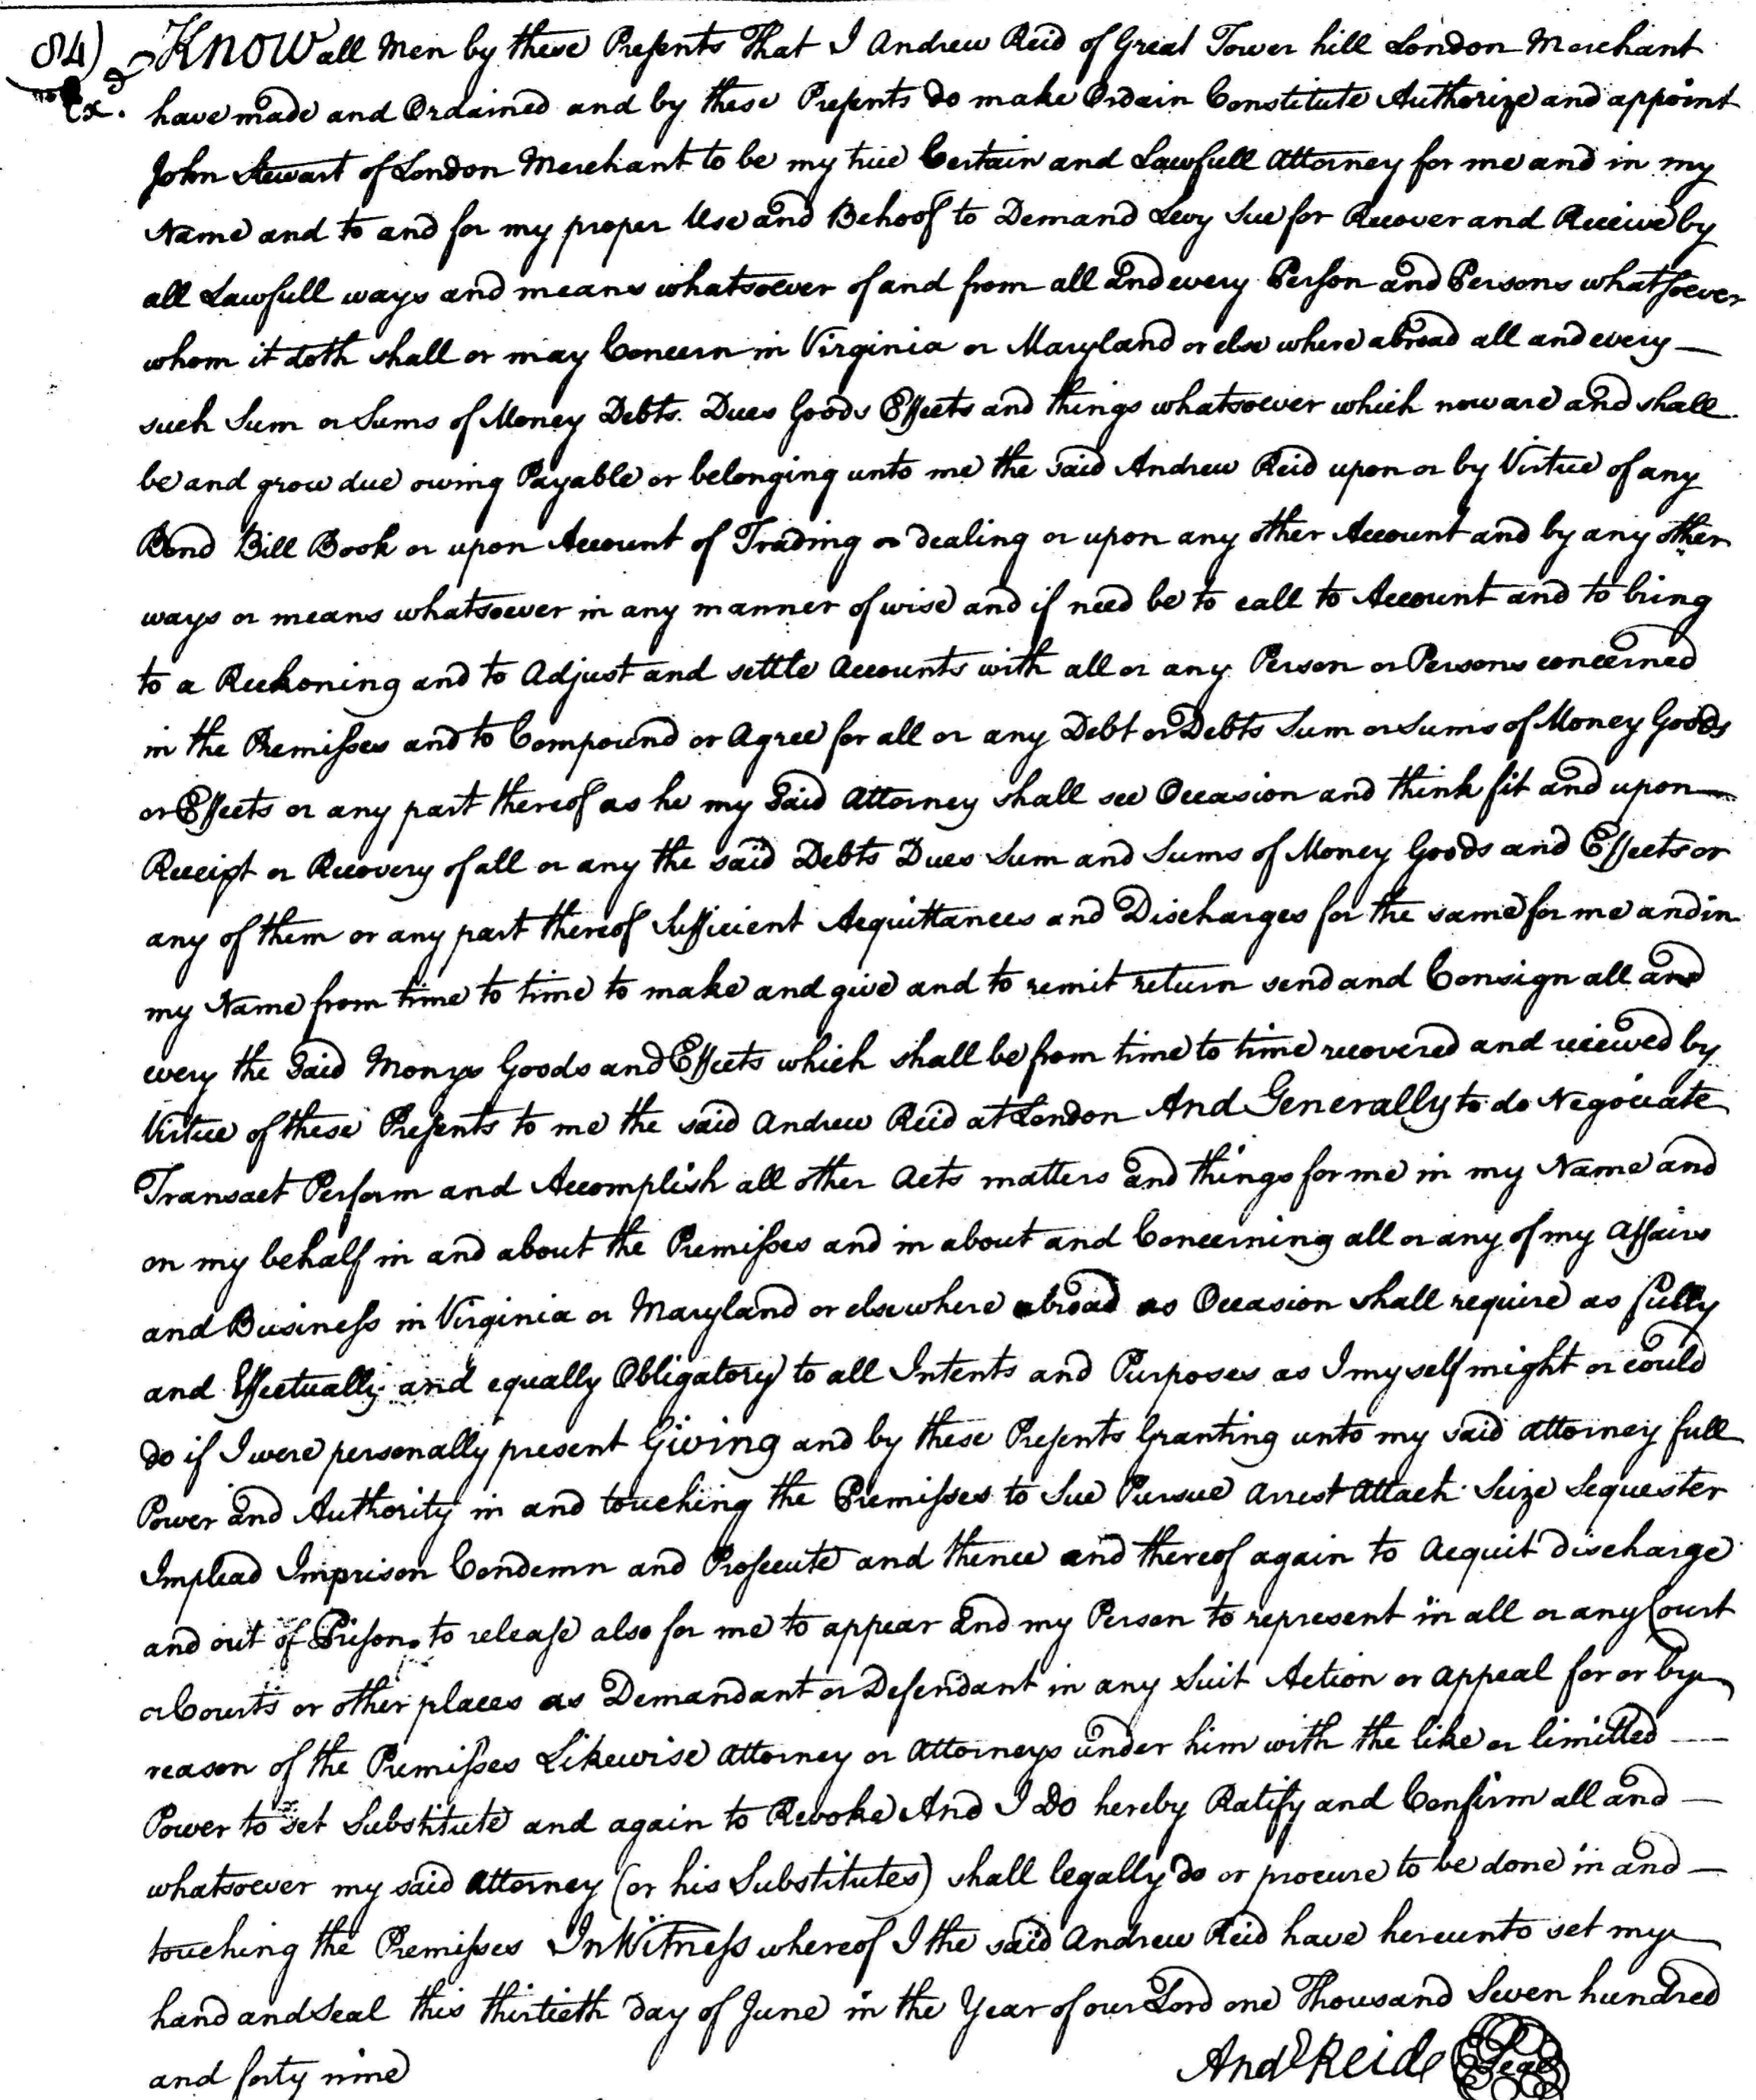 84) KNOW all Men by these Presents That I Andrew Reid of Great Tower hill London Merchant
Exd. have made and Ordained and by these Presents do make Ordain Constitute Authorize and appoint
John Stewart of London Merchant to be my true Certain and Lawfull Attorney for me and in my
Name and to and for my proper Use and Behoof to Demand Levy Sue for Recover and Receive by
all Lawfull ways and means whatsoever of and from all and every Person and Persons whatsoever
whom it doth shall or may Concern in Virginia or Maryland or else where abroad all and every
such Sum or Sums of Money Debts. Dues Goods Effects and things whatsoever which now are and shall
be and grow due owing Payable or belonging unto me the said Andrew Reid upon or by Virtue of any
Bond Bill Book or upon Account of Trading or dealing or upon any other Account and by any other
ways or means whatsoever in any manner of wise and if need be to call to Account and to bring
to a Reckoning and to Adjust and settle Accounts with all or any Person or Persons concerned
in the Premisses and to Compound or Agree for all or any Debt or Debts Sum or Sums of Money Goods
or Effects or any part thereof as he my Said Attorney shall see Occasion and think fit and upon
Receipt or Recovery of all or any the said Debts Dues Sum and Sums of Money Goods and Effects or
any of them or any part thereof Sufficient Acquittances and Discharges for the same for me and in
my Name from time to time to make and give and to remit return send and Consign all and
every the Said Monys Goods and Effects which shall be from time to time recovered and received by
Virtue of these Presents to me the said Andrew Reid at London And Generally to do Negociate
Transact Perform and Accomplish all other Acts matters and things for me in my Name and
on my behalf in and about the Premisses and in about and Concerning all or any of my Affairs
and Business in Virginia or Maryland or elsewhere abroad as Occasion shall require as fully
and Effectually and equally Obligatory to all Intents and Purposes as I myself might or could
do if I were personally present Giving and by these Presents Granting unto my said attorney full
Power and Authority in and touching the Premisses to Sue Pursue Arrest Attach Seize Sequester
Implead Imprison Condemn and Prosecute and thence and thereof again to Acquit discharge
and out of Prison to release also for me to appear and my Person to represent in all or any Court
or Courts or other places as Demandant or Defendant in any Suit Action or appeal for or by
reason of the Premisses Likewise attorney or Attorneys under him with the like or limitted
Power to set Substitute and again to Revoke And I Do hereby Ratify and Confirm all and
whatsoever my said Attorney (or his Substitutes) shall legally do or procure to be done in and
touching the Premisses In Witness whereof I the said Andrew Reid have hereunto set my
hand and Seal this thirtieth day of June in the Year of our Lord one Thousand Seven hundred
and forty nine Andw Reid Seal